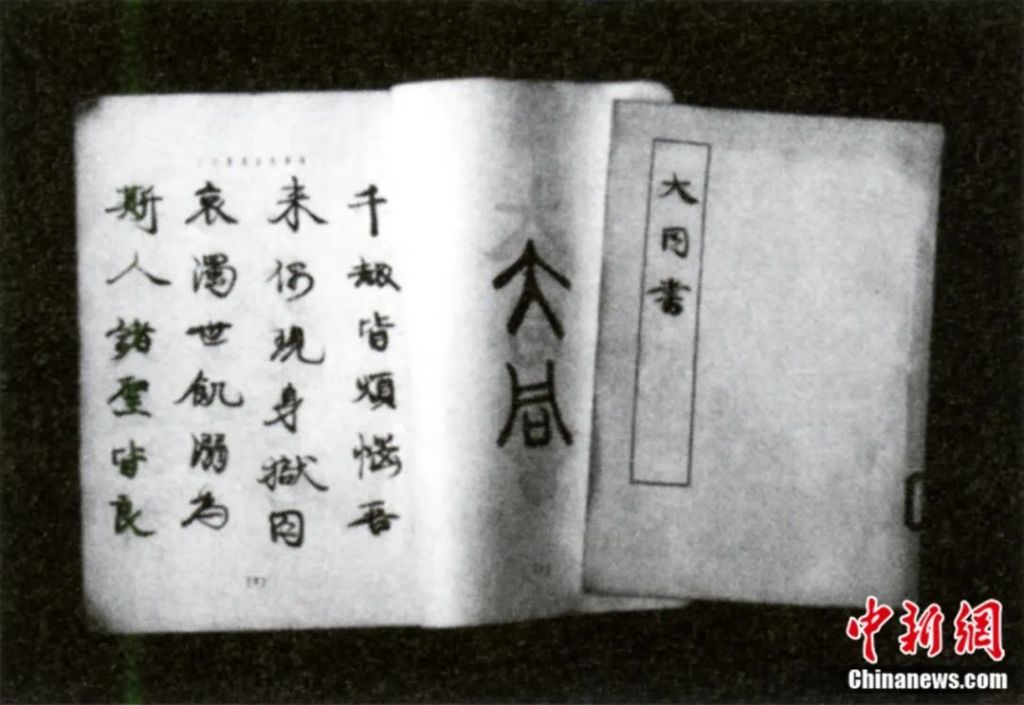 大同書
大同
千劫皆煩惱吾
来偶現身獄囚
哀濁世飢溺為
斯人諸聖皆良
中新網
Chinanews.com